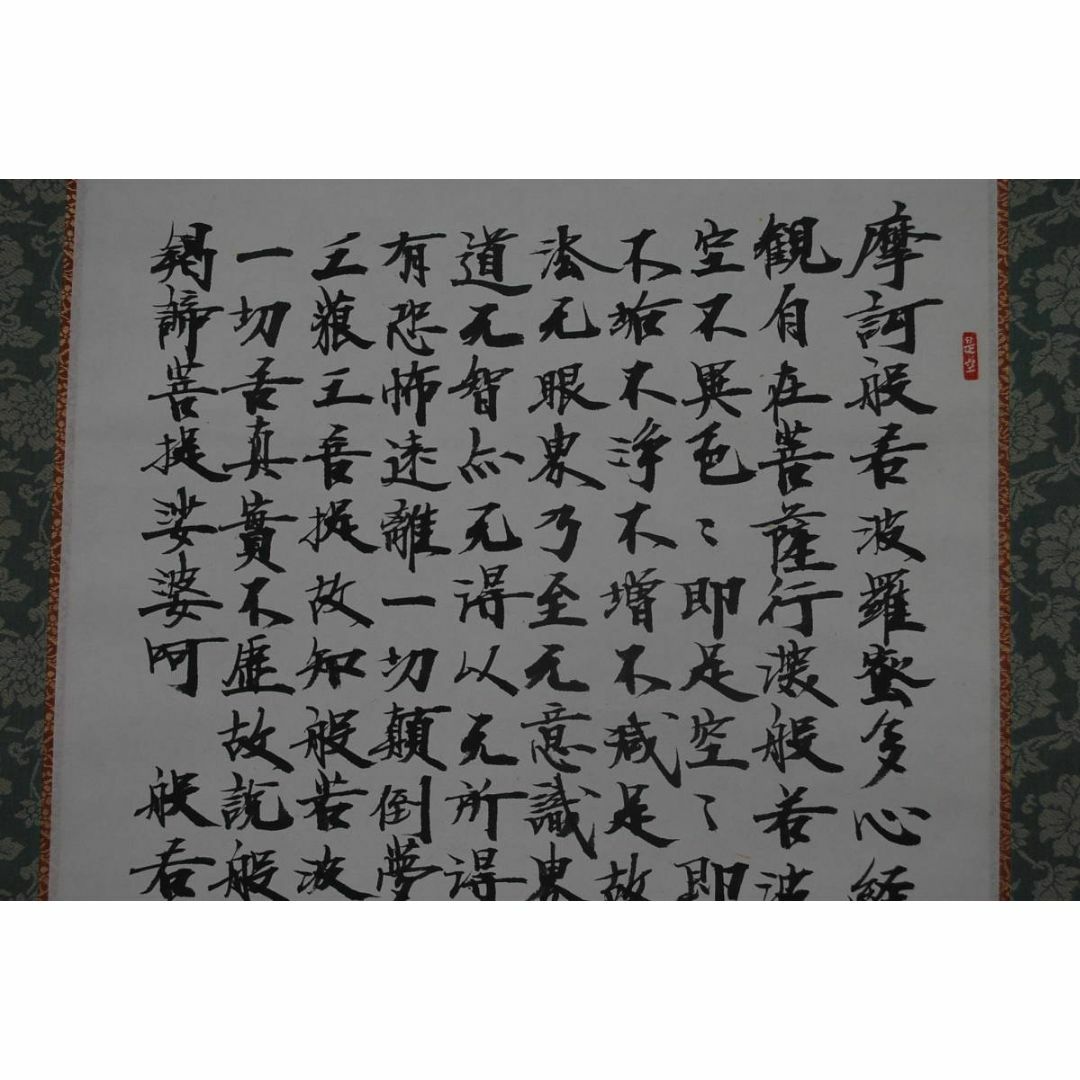 是空
摩訶般若波羅蜜多心経
観自在菩薩行深般若波
空不異色〻即是空〻即
不垢不浄不増不減是故
法无眼界乃至无意識界
道无智亦无得以无所得
有恐怖遠離一切顛倒夢
三藐三菩提故知般若波
一切苦真實不虚故説般
羯諦菩提娑婆呵 般若